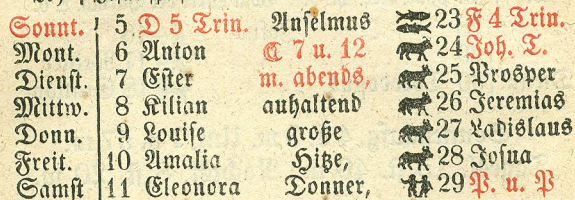 Sonnt. 5 D 5 Trin. Anselmus 23 F 4 Trin.
Mont. 6 Anton ☾ 7 u. 12 24 Joh. T.
Dienst. 7 Ester m. abends, 25 Prosper
Mittw. 8 Kilian anhaltend 26 Jeremias
Donn. 9 Louise große 27 Ladislaus
Freit. 10 Amalia Hitze, 28 Josua
Samst 11 Eleonora Donner, 29 P. u. P